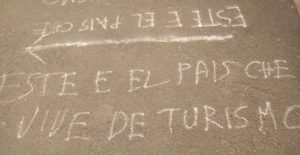 ESTE E EL PAIS CHE
ESTE E EL PAIS CHE
VIVE DE TURISMO